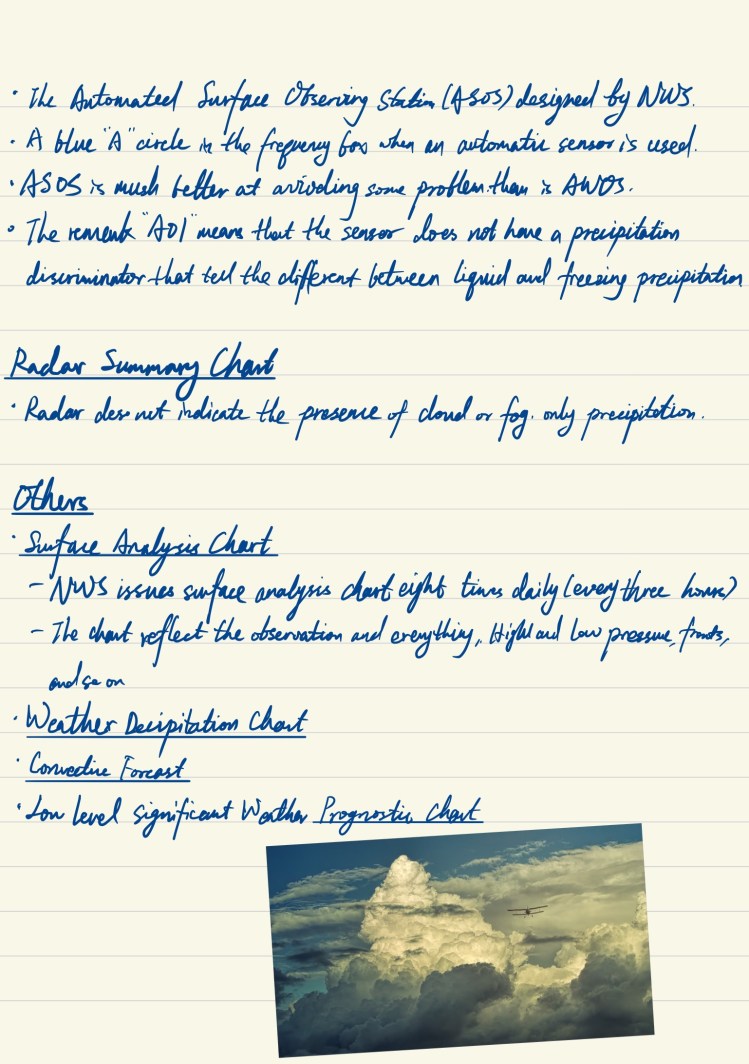 · The Automated Surface Observing Station (ASOS) designed by NWS.
· A blue "A" circle in the frequency box when an automatic sensor is used.
· ASOS is mush better at avioding some problem than is AWOS.
· The remark "AO1" means that the sensor does not have a precipitation
discriminator that tell the different between liquid and freezing precipitation
Radar Summary Chart
· Radar does not indicate the presence of cloud or fog. only precipitation.
Others
· Surface Analysis Chart
- NWS issues surface analysis chart eight times daily (every three hours)
- The chart reflect the observation and everything, High and low pressure, fronts,
and so on
· Weather Decipitation Chart
· Convective Forcast
· Low level significant Weather Prognostic Chart